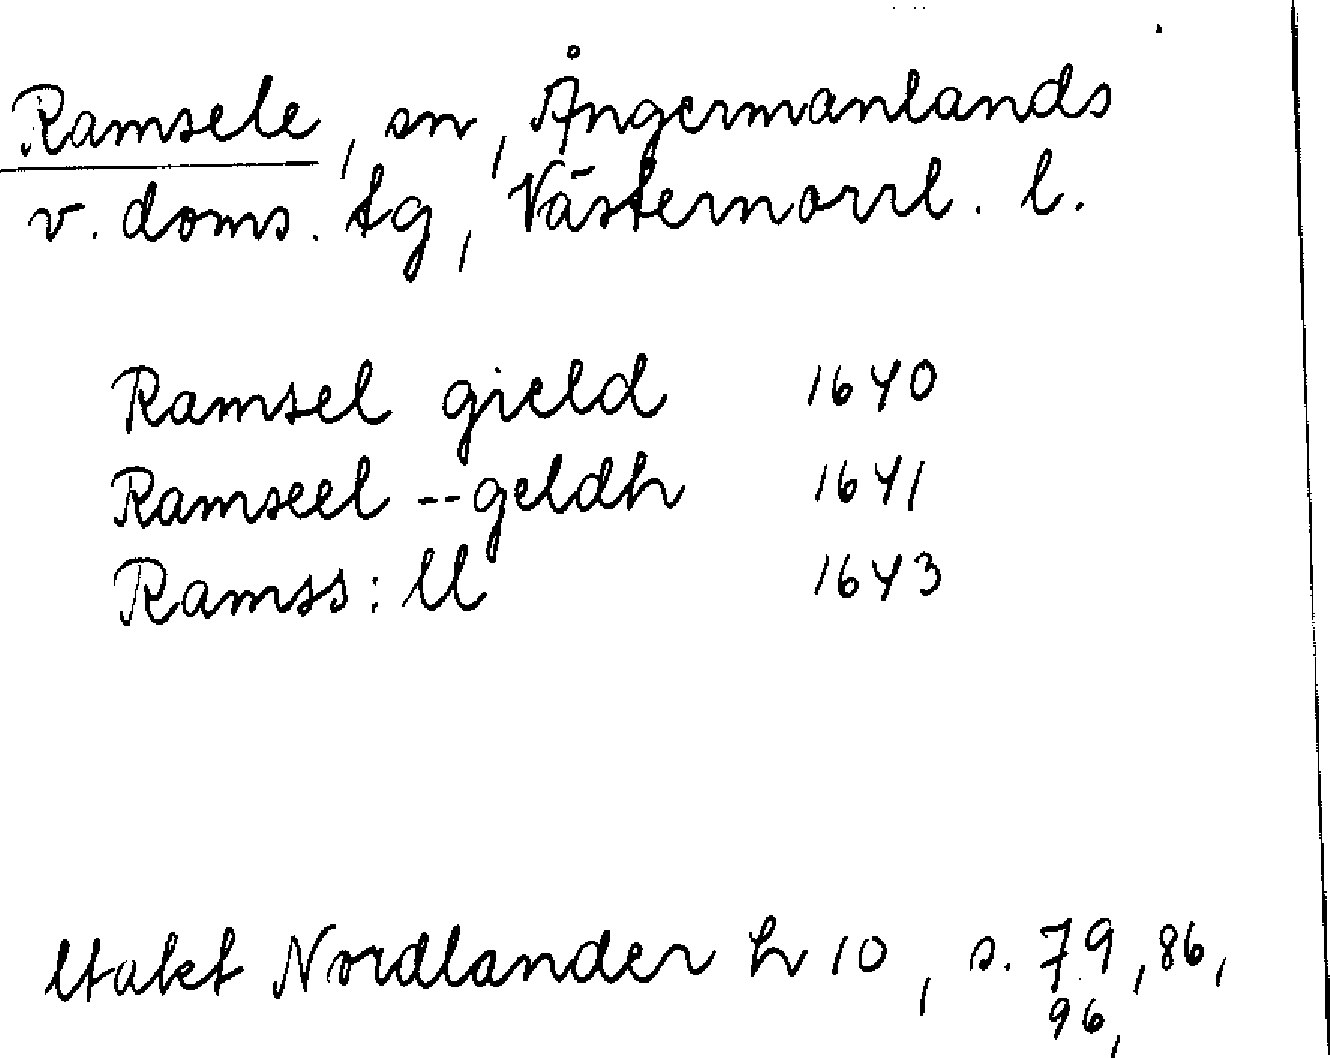 Ramsele, sn, Ångermanlands
v. doms. tg, Västernorrl. l.
Ramsel gield 1640
Ramseel -- geldh 1641
Ramss: ll 1643
Utakt Nordlander h 10, s. 79, 86,
96,